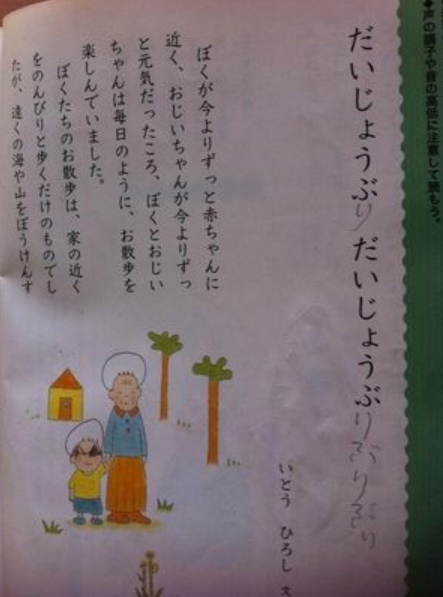 ◆声の調子や音の高低に注意して読もう。
だいじょうぶり だいじょうぶりぶりぶり
いとう ひろし 文
ぼくが今よりずっと赤ちゃんに
近く、おじいちゃんが今よりずっ
と元気だったころ、ぼくとおじい
ちゃんは毎日のように、お散歩を
楽しんでいました。
ぼくたちのお散歩は、家の近く
をのんびりと歩くだけのものでし
たが、遠くの海や山をぼうけんす